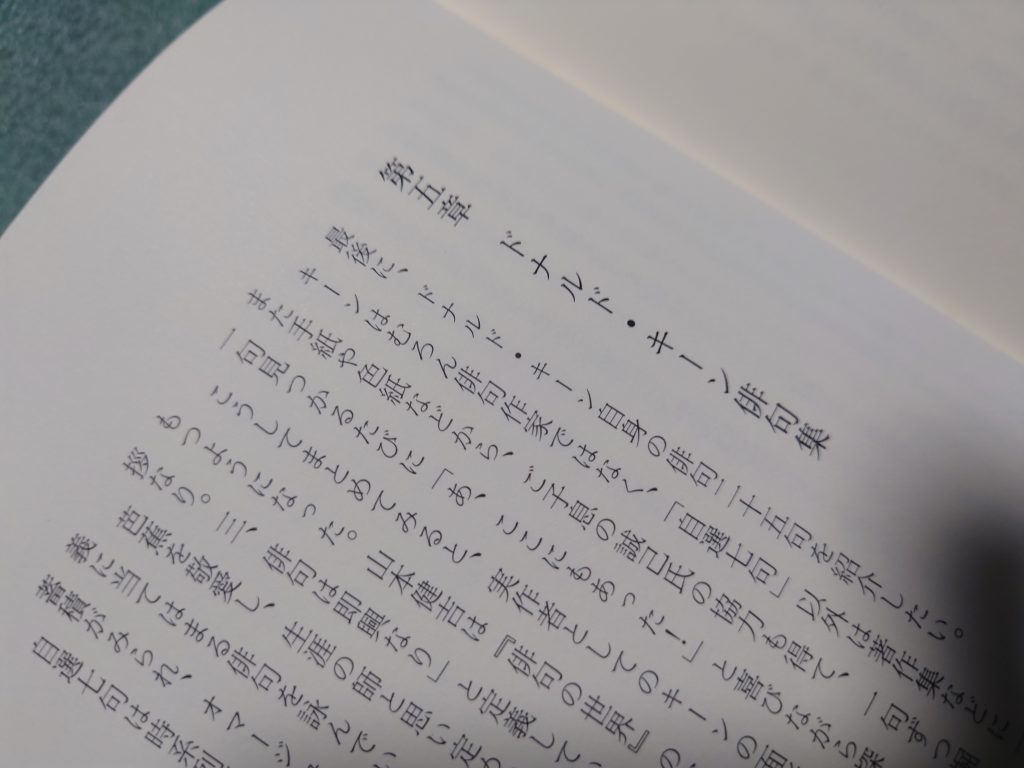 第五章　ドナルド・キーン俳句集
最後に、ドナルド・キーン自身の俳句二十五句を紹介したい。
キーンはむろん俳句作家ではなく、「自選七句」以外は著作集などに
また手紙や色紙などから、ご子息の誠己氏の協力も得て、一句ずつ
一句見つかるたびに「あ、ここにもあった！」と喜びながら
こうしてまとめてみると、実作者としてのキーンの面
もつようになった。山本健吉は『俳句の世界』の
拶なり。三、俳句は即興なり」と定義してい
芭蕉を敬愛し、生涯の師と思い定め
義に当てはまる俳句を詠んでい
蓄積がみられ、オマージ
自選七句は時系列